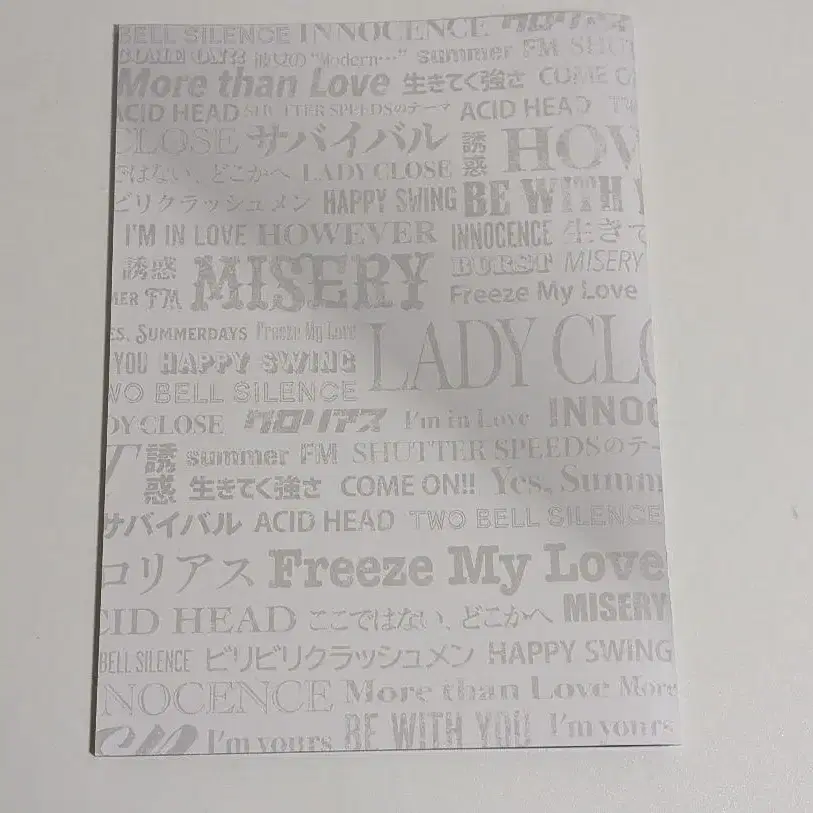 BELL SILENCE INNOCENCE グロリアス
COME ON!! 彼女の"Modern…" summer FM SHUT
More than Love 生きてく強さ COME O
ACID HEAD SHUTTER SPEEDSのテーマ ACID HEAD TW
CLOSE サバイバル 誘惑 HOW
ではない、どこかへ LADY CLOSE
ビリクラッシュメン HAPPY SWING BE WITH Y
I'M IN LOVE HOWEVER INNOCENCE 生きて
誘惑 MISERY BURST MISERY
MER FM Freeze My Love
ES, SUMMERDAYS Freeze My Love
YOU HAPPY SWING LADY CLO
WO BELL SILENCE
DY CLOSE グロリアス I'm in Love INNOC
T 誘惑 summer FM SHUTTER SPEEDSのテー
生きてく強さ COME ON!! Yes, Summ
サバイバル ACID HEAD TWO BELL SILENCE
ロリアス Freeze My Love
CID HEAD ここではない、どこかへ MISERY
BELL SILENCE ビリビリクラッシュメン HAPPY SWING
NOCENCE More than Love More
I'm yours BE WITH YOU I'm yours